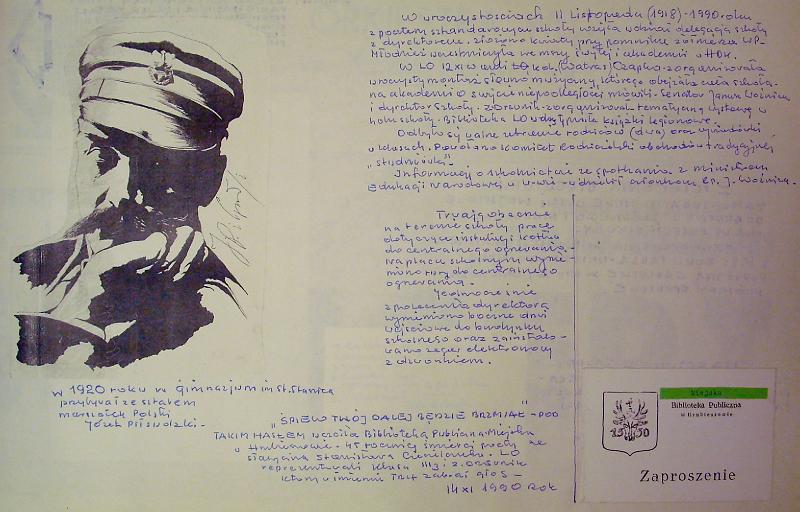 W uroczystościach 11 Listopada (1918) - 1990 roku
z pocztem sztandarowym szkoły wzięła udział delegacja szkoły
z dyrektorem. złożono kwiaty przy pomniku żołnierza WP-
Młodzież uczestniczyła we mszy świętej i akademii w HDK.
W LO 12 XI w auli kol. (Watras) Czapka zorganizowała
uroczysty montaż słowno muzyczny, którego obejrzała cała szkoła.
na akademii o święcie niepodległości mówili - Senator Janusz Woźnica
i dyrektor szkoły. zorganizował tematyczną wystawę w
holu szkoły. Biblioteka LO książki legionowe.
Odbyło się walne zebranie rodziców (dwa) oraz wywiadówki
w klasach. Powołano komitet Rodzicielski obchodów tradycyjnej
"studniówki".
Informacji o szkolnictwie ze spotkania z ministrem
Edukacji Narodowej w W-wie - udzielił członkom R.P. J. Woźnica.
Trwają obecnie
na terenie szkoły prace
dotyczące instalacji kotła
do centralnego ogrzewania.
Na placu szkolnym wymie-
niono rury do centralnego
ogrzewania.
Jednocześnie
z polecenia dyrektora
wymieniono boczne drzwi
wejściowe do budynku
szkolnego oraz zainstalo-
wano zegar elektronowy
z dzwonkiem.
w 1920 roku w gimnazjum im. St. Staszica
przybywał ze sztabem
marszałek Polski
Józef Piłsudzki.
"ŚPIEW TWÓJ DALEJ BĘDZIE BRZMIAŁ" - POD
TAKIM HASŁEM uczciła Biblioteka Publiczna Miejska
w Hrubieszowie - 45 rocznicę śmierci poety ze
Stanisława LO
reprezentowali klasa III
który w imieniu zabrał głos -
14 XI 1990 rok
Miejska
Biblioteka Publiczna
w Hrubieszowie
1550
Zaproszenie